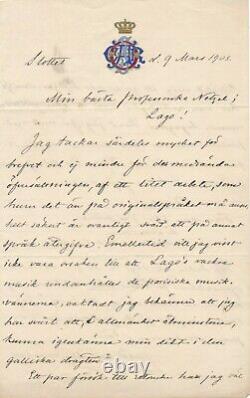 Slottet d. 9 Mars 1908.
Min bästa Professorska Netzel,
Lago!
Jag tackar särdeles mycket för
brefvet och ej mindre för den medsända
öfversättningen af ett litet arbete, som
huru det än på originalspråket må anses,
helt säkert är svårt att på annat
språk återgifva. Emellertid vill jag visst
icke vara orsaken till att Lago's vackra
musik undanhålles de parisiska musik-
vännerna, jag bekänner att jag
har svårt att, i allmänhet åtminstone,
kunna igenkänna min dikt i den
galliska drägten!
Ett par försök till har jag väl
© worthpoint